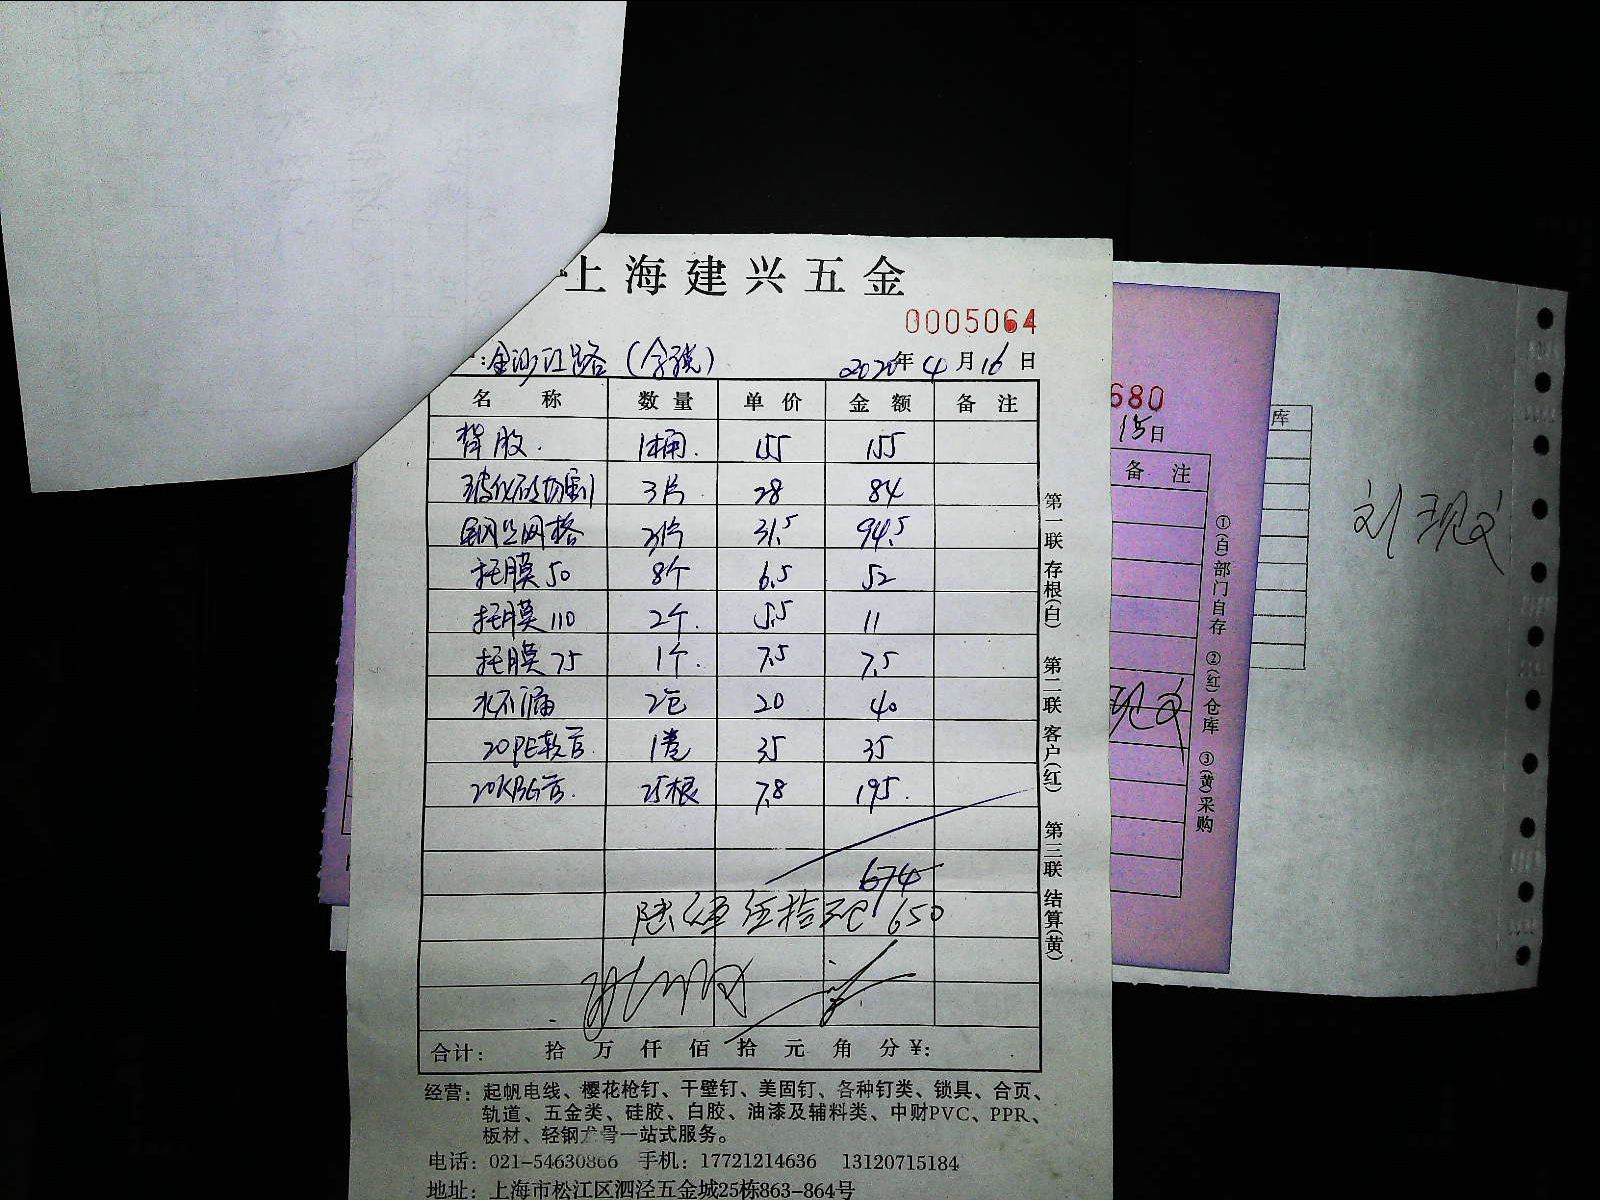 上海建兴五金
0005064
:金沙江路
2020年4月16日
名称 数量 单价 金额 备注
背胶 1桶 155 155
玻化砖切割 3片 28 84
钢丝网格 3片 31.5 94.5
托膜50 8个 6.5 52
托膜110 2个 5.5 11
托膜75 1个 7.5 7.5
水不漏 2包 20 40
20PE软管 1卷 35 35
20KBG管 25根 7.8 195
674
650
合计: 拾 万 仟 佰 拾 元 角 分 ¥:
经营:起帆电线、樱花枪钉、干壁钉、美固钉、各种钉类、锁具、合页、
轨道、五金类、硅胶、白胶、油漆及辅料类、中财PVC、PPR、
板材、轻钢龙骨一站式服务。
电话:021-54630866 手机:17721214636 13120715184
地址:上海市松江区泗泾五金城25栋863-864号
第一联 存根(白) 第二联 客户(红) 第三联 结算(黄)
680
15日
备注
①(白)部门自存 ②(红)仓库 ③(黄)采购
库
刘现文